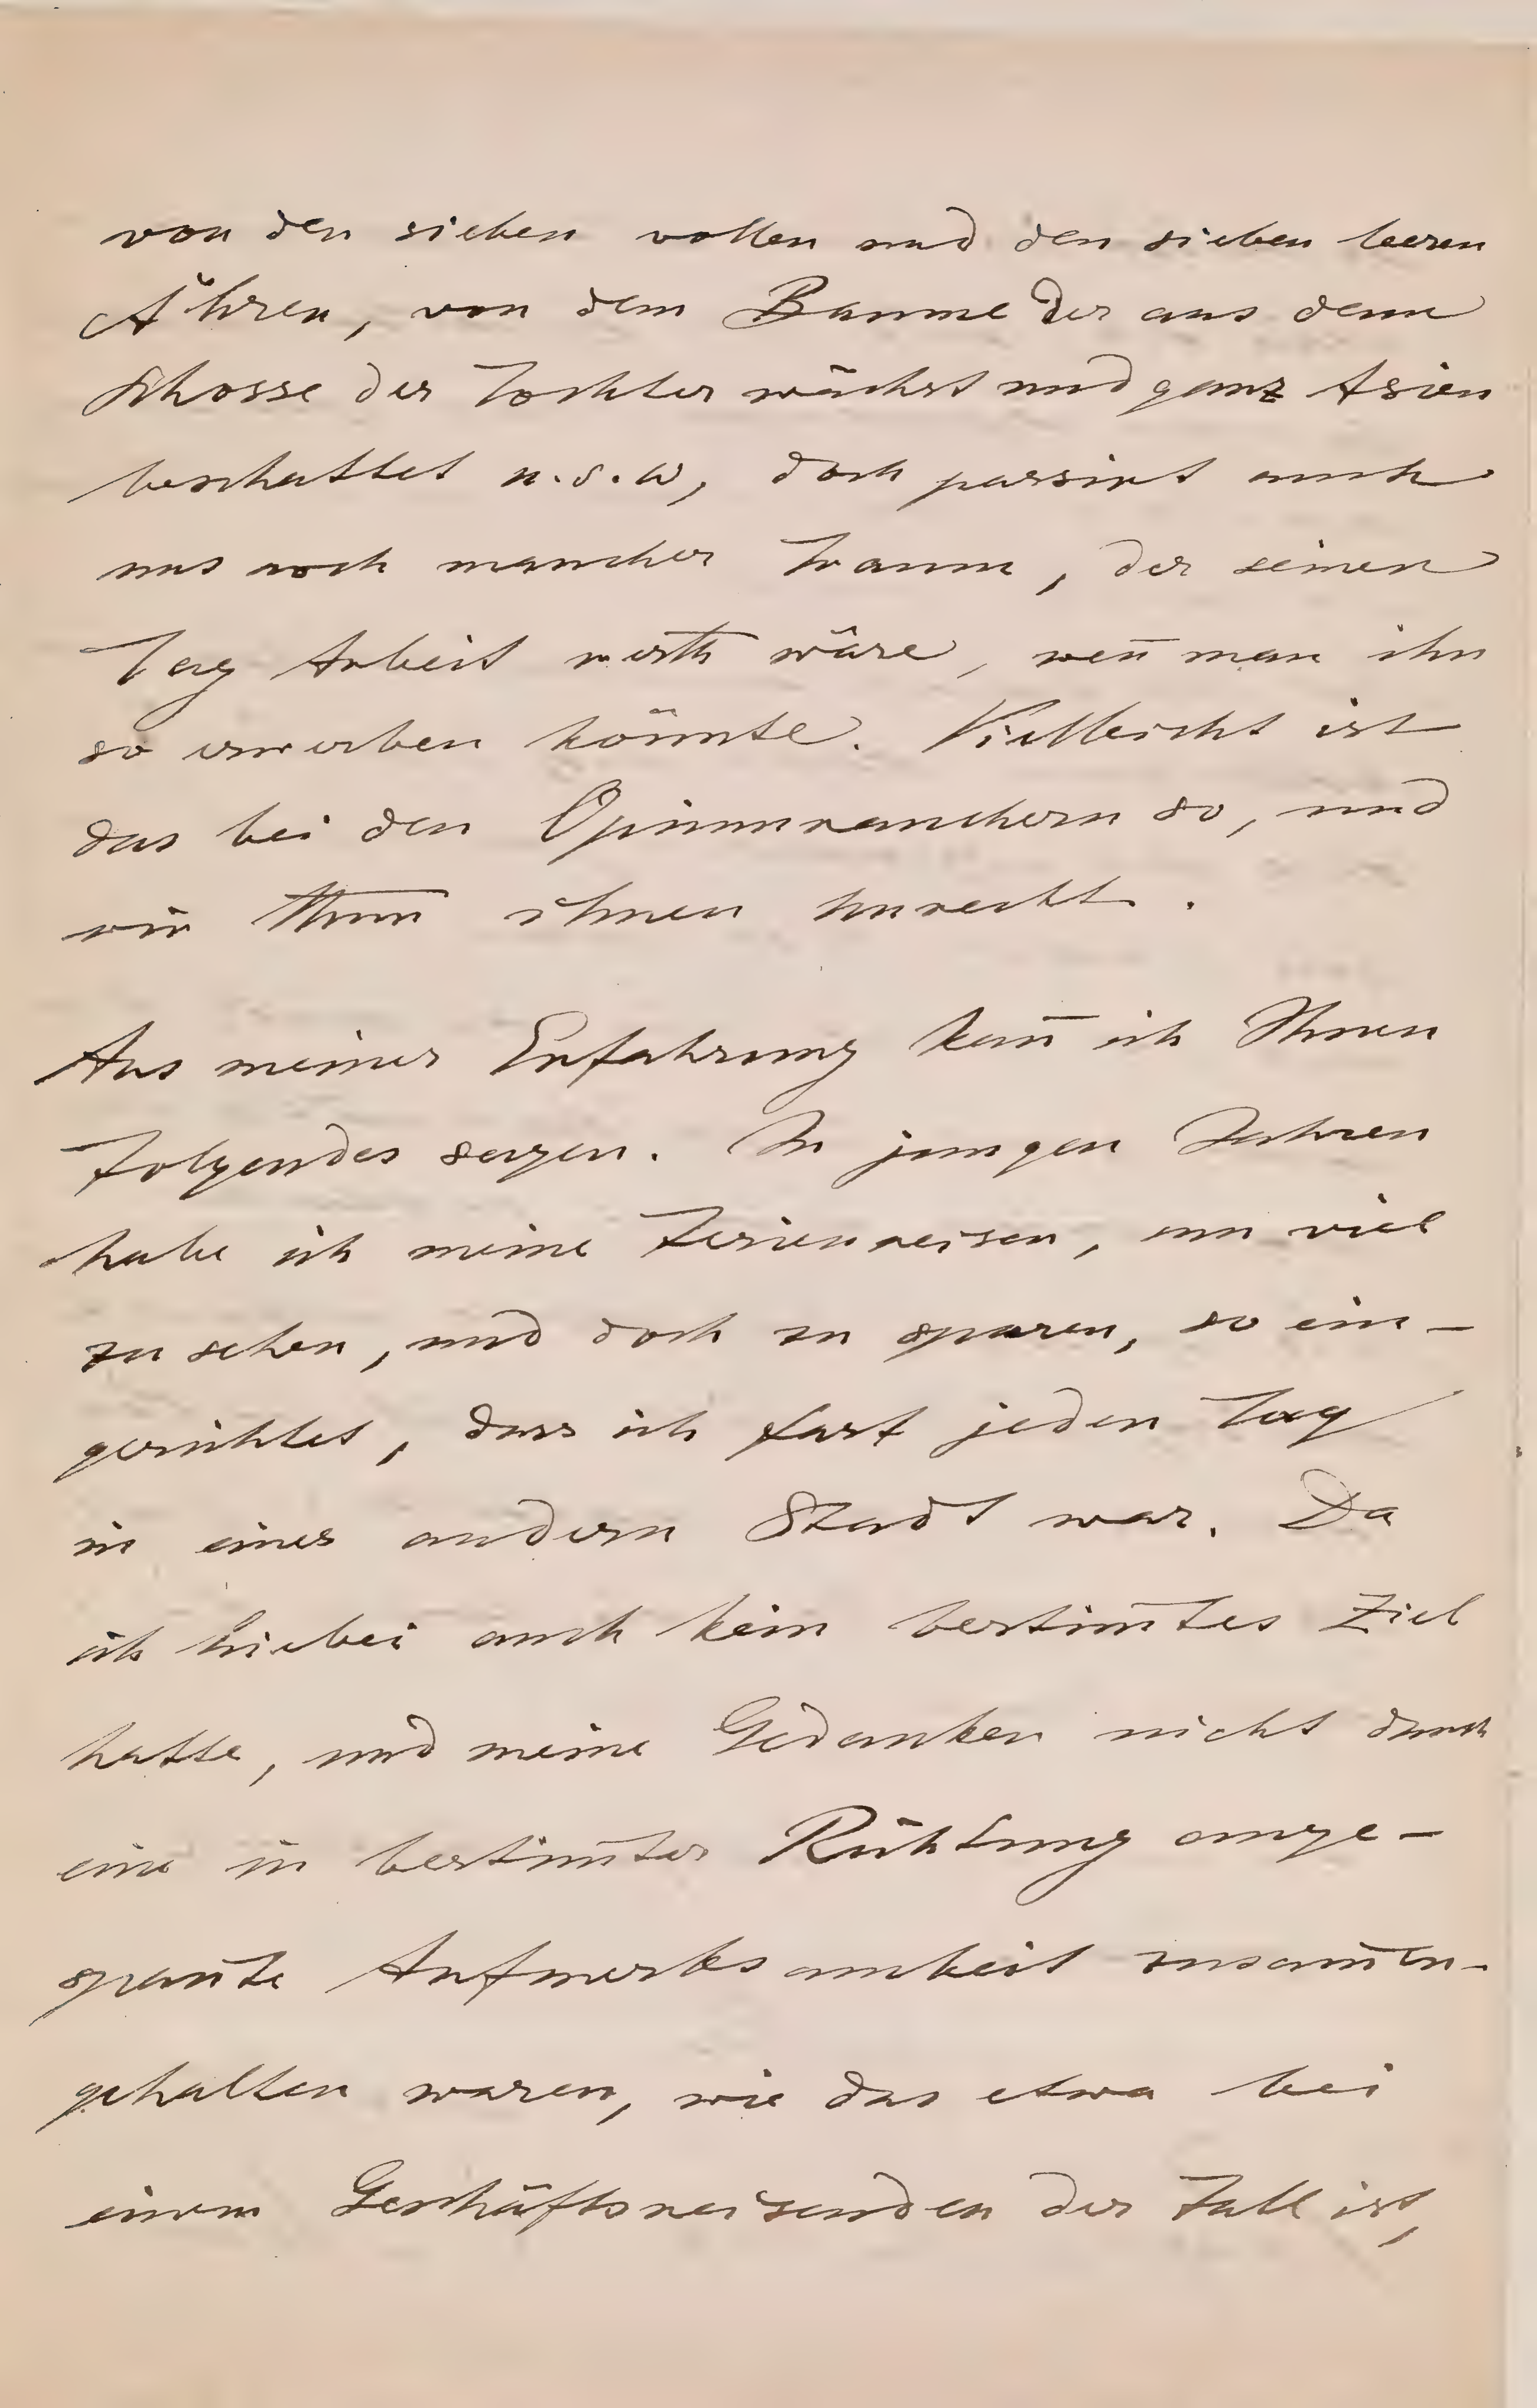 von den sieben vollen und den sieben leeren
Ähren, von dem Baume der aus dem
Schosse der Tochter wächst und ganz Asien
beschattet u.s.w, doch passirt auch
uns noch mancher Traum, der seinen
Tag Arbeit werth wäre, wen̄ man ihn
so erwerben könnte. Vielleicht ist
das bei den Opiumrauchern so, und
wir thun ihnen Unrecht.
Aus meiner Erfahrung kan̄ ich Ihnen
Folgendes sagen. In jungen Jahren
habe ich meine Ferienreisen, um viel
zu sehen, und doch zu sparen, so ein-
gerichtet, dass ich fast jeden Tag
in einer andern Stadt war. Da
ich hiebei auch kein bestim̄tes Ziel
hatte, und meine Gedanken nicht durch
eine in bestim̄ter Richtung ange-
span̄te Aufmerksamkeit zusam̄en-
gehalten waren, wie das etwa bei
einem Geschäftsreisenden der Fall ist,